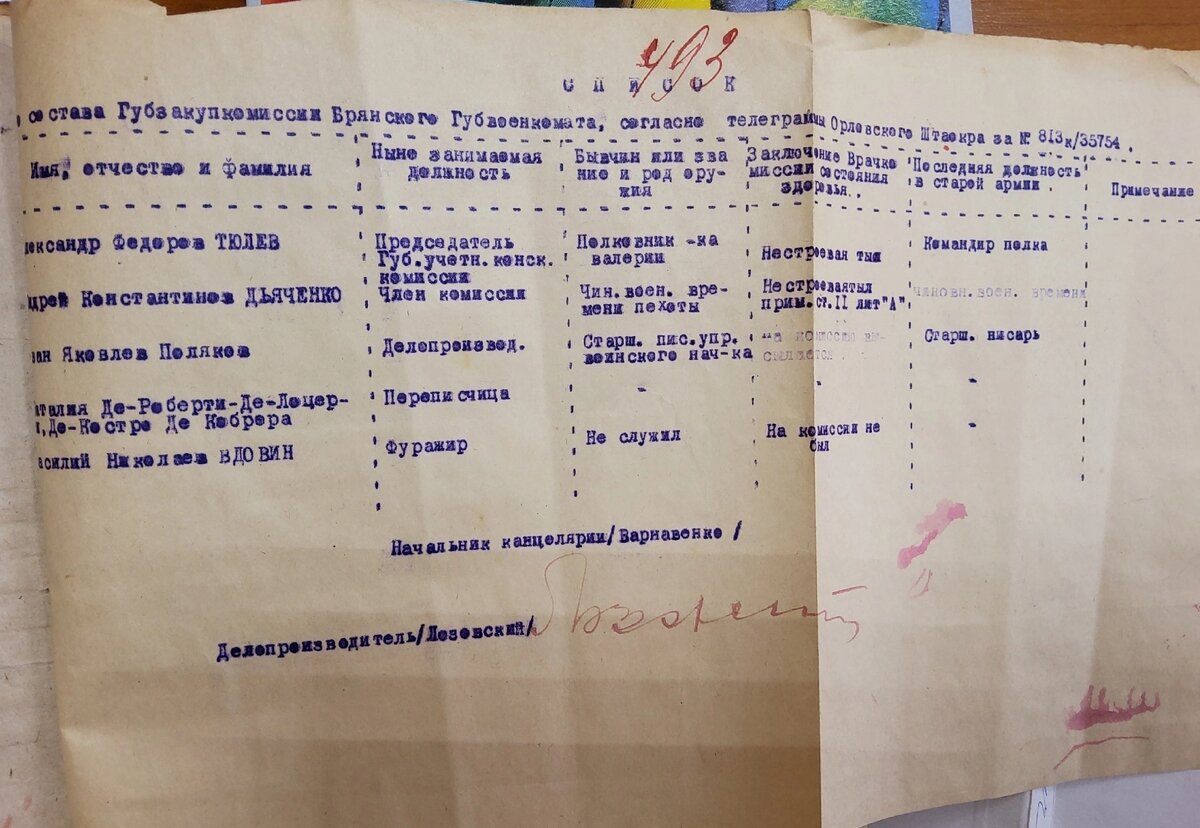 493
СПИСОК
состава Губзакупкомиссии Брянского Губвоенкомата, согласно телеграммы Орловского Штаокра за № 813к/35754 .
Имя, отчество и фамилия
Ныне занимаемая
должность
Бывчин или зва
ние и род ору-
жия
Заключение Врачко
миссии состояния
здоровья..
Последняя должность
в старой армии .
Примечание
лександр Федоров ТЮЛЕВ
Председатель
Губ.учетн.конск.
комиссии
Полковник -ка
валерии
Нестроевая тыл
Командир полка
дрей Константинов ДЬЯЧЕНКО
Член комиссии
Чин.воен. вре-
мени пехоты
Нестроеваятыл
прим.ст.II лит"А"
чиновн.воен. времени
ван Яковлев Поляков
Делопроизвод.
Старш. пис.упр.
воинского нач-ка
на комиссию вы-
сылается .
Старш. писарь
аталия Де-Роберти-De-Лоцер-
и,Де-Костро Де Кобрера
Переписчица
"
"
"
асилий Николаев ВДОВИН
Фуражир
Не служил
На комиссии не
был
"
Начальник канцелярии/Варнавенко /
Делопроизводитель/Лозовский/